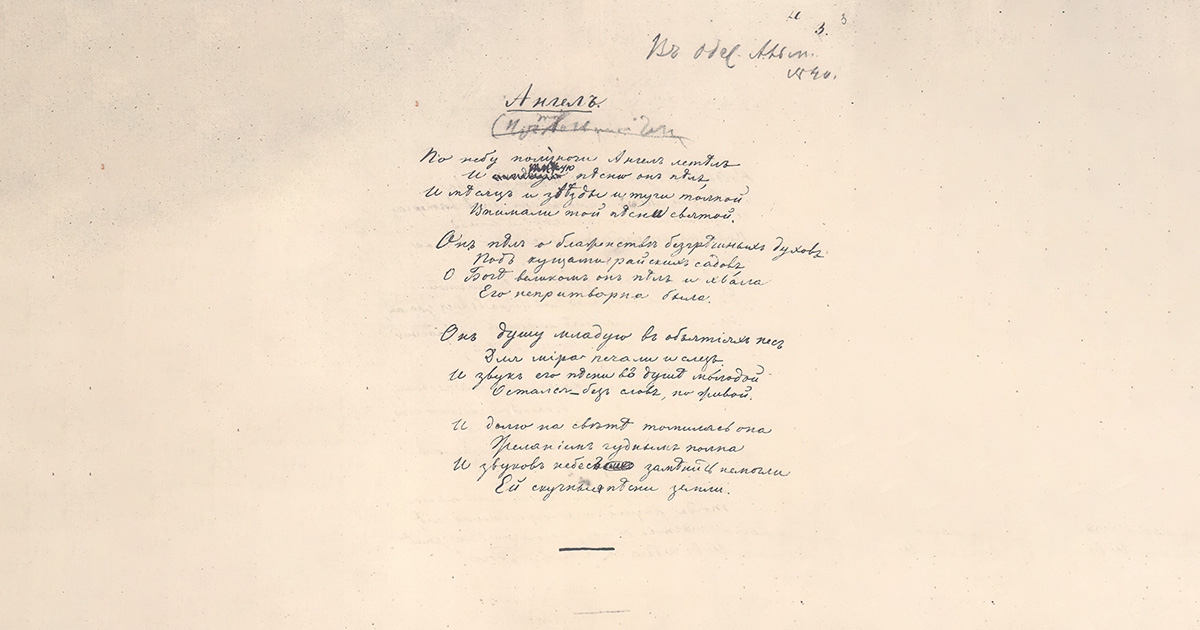 3.
Въ Одес. Альм.
1840.
Ангелъ
По небу полуночи Ангелъ летѣлъ
И тихую пѣсню онъ пѣлъ
И мѣсяцъ и звѣзды и тучи толпой
Внимали той пѣсни святой.
Онъ пѣлъ о блаженствѣ безгрѣшныхъ духовъ
Подъ кущами райскихъ садовъ
О Богѣ великомъ онъ пѣлъ и хвала
Его непритворна была.
Онъ душу младую въ объятіяхъ несъ
Для міра печали и слезъ
И звукъ его пѣсни въ душѣ молодой
Остался безъ словъ, но живой.
И долго на свѣтѣ томилась она
Желаніемъ чуднымъ полна
И звуковъ небесъ замѣнить немогли
Ей скучныя пѣсни земли.